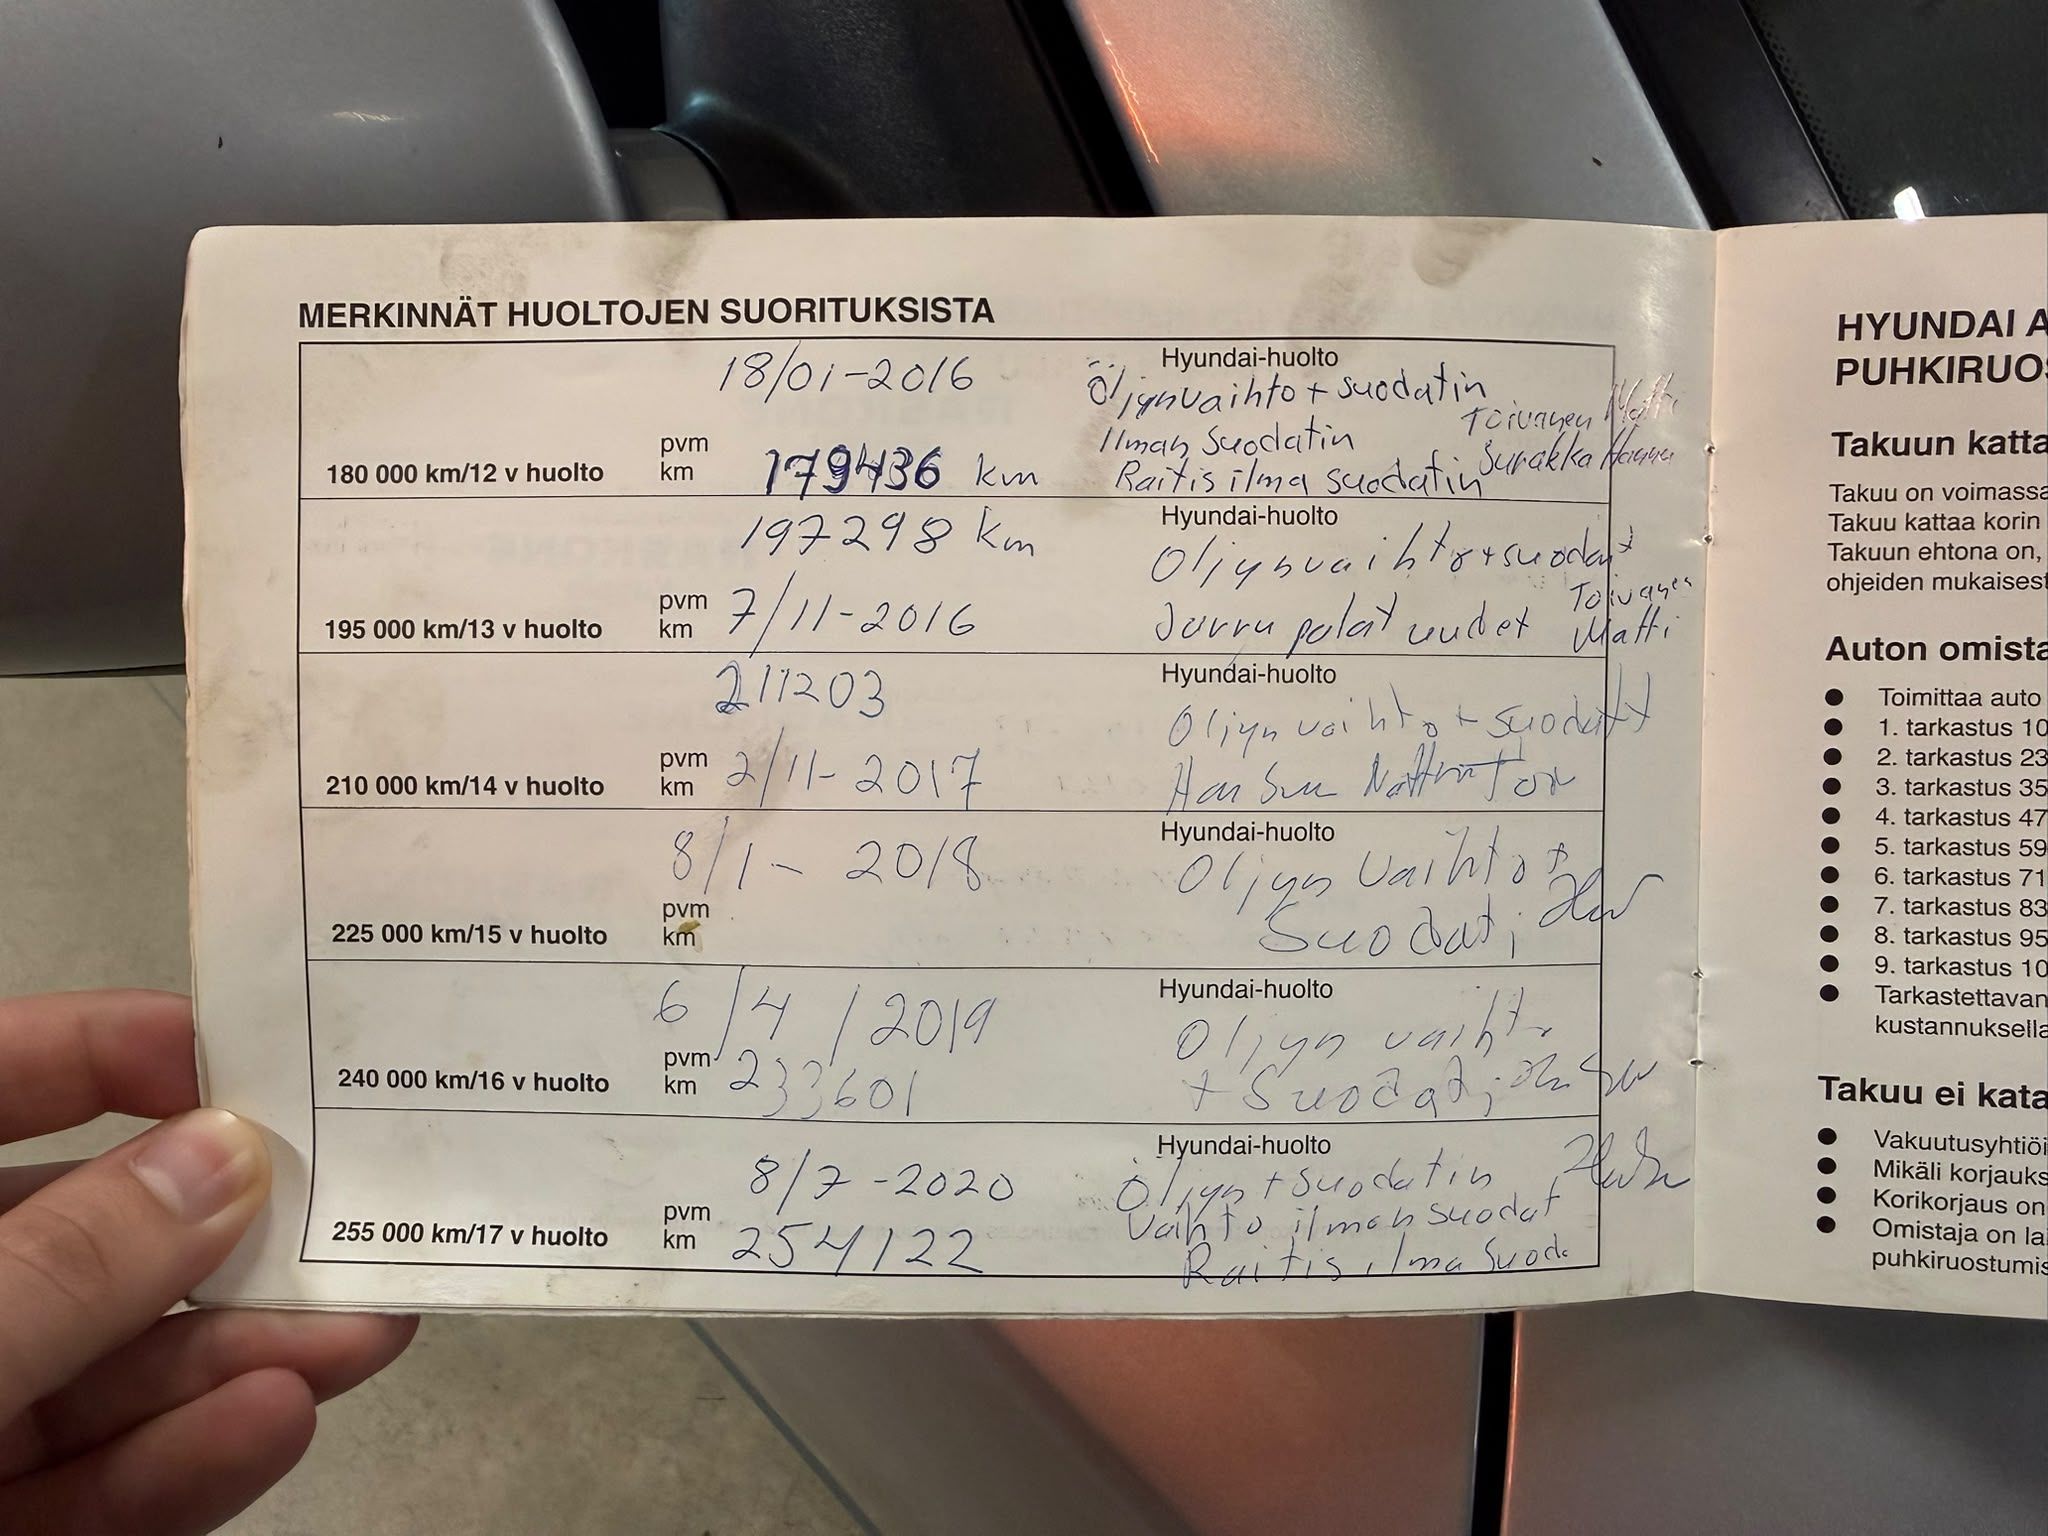 MERKINNÄT HUOLTOJEN SUORITUKSISTA
18/01-2016
Hyundai-huolto
Öljynvaihto + suodatin
Toivanen Matti
Ilman suodatin
Surakka
pvm
180 000 km/12 v huolto
km
179436 km
Raitis ilma suodatin
197298 km
Hyundai-huolto
Oljynvaihto + suodat
pvm
7/11-2016
Toivanen
195 000 km/13 v huolto
km
Jarru palat uudet
Matti
211203
Hyundai-huolto
Oljyn vaihto + suodatt
pvm
2/11-2017
210 000 km/14 v huolto
km
8/1-2018
Hyundai-huolto
Oljyn vaihto +
pvm
Suodat;
225 000 km/15 v huolto
km
6/4/2019
Hyundai-huolto
Oljyn vaihto
pvm
240 000 km/16 v huolto
km
233601
+ Suodat;
Hyundai-huolto
8/7-2020
Öljyn + suodatin
pvm
vaihto ilman suodat
255 000 km/17 v huolto
km
254122
Raitis ilma Suod
HYUNDAI A
PUHKIRUOS
Takuun katta
Takuu on voimassa
Takuu kattaa korin
Takuun ehtona on,
ohjeiden mukaisest
Auton omista
● Toimittaa auto
● 1. tarkastus 10
● 2. tarkastus 23
● 3. tarkastus 35
● 4. tarkastus 47
● 5. tarkastus 59
● 6. tarkastus 71
● 7. tarkastus 83
● 8. tarkastus 95
● 9. tarkastus 10
● Tarkastettavan
kustannuksella
Takuu ei kata
● Vakuutusyhtiöi
● Mikäli korjauks
● Korikorjaus on
● Omistaja on lai
puhkiruostumis